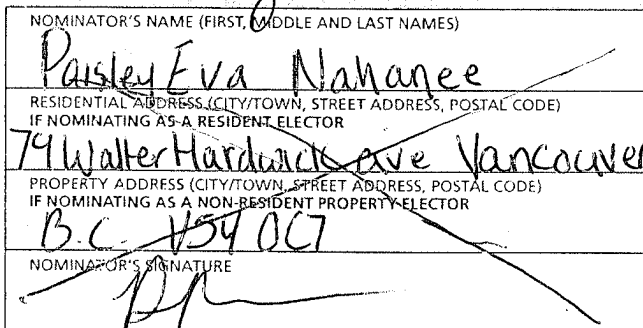 NOMINATOR'S NAME (FIRST, MIDDLE AND LAST NAMES)
Paisley Eva Nahanee
RESIDENTIAL ADDRESS (CITY/TOWN, STREET ADDRESS, POSTAL CODE)
IF NOMINATING AS A RESIDENT ELECTOR
79 Walter Hardwick ave Vancouver
PROPERTY ADDRESS (CITY/TOWN, STREET ADDRESS, POSTAL CODE)
IF NOMINATING AS A NON-RESIDENT PROPERTY ELECTOR
B.C. V5Y 0C7
NOMINATOR'S SIGNATURE